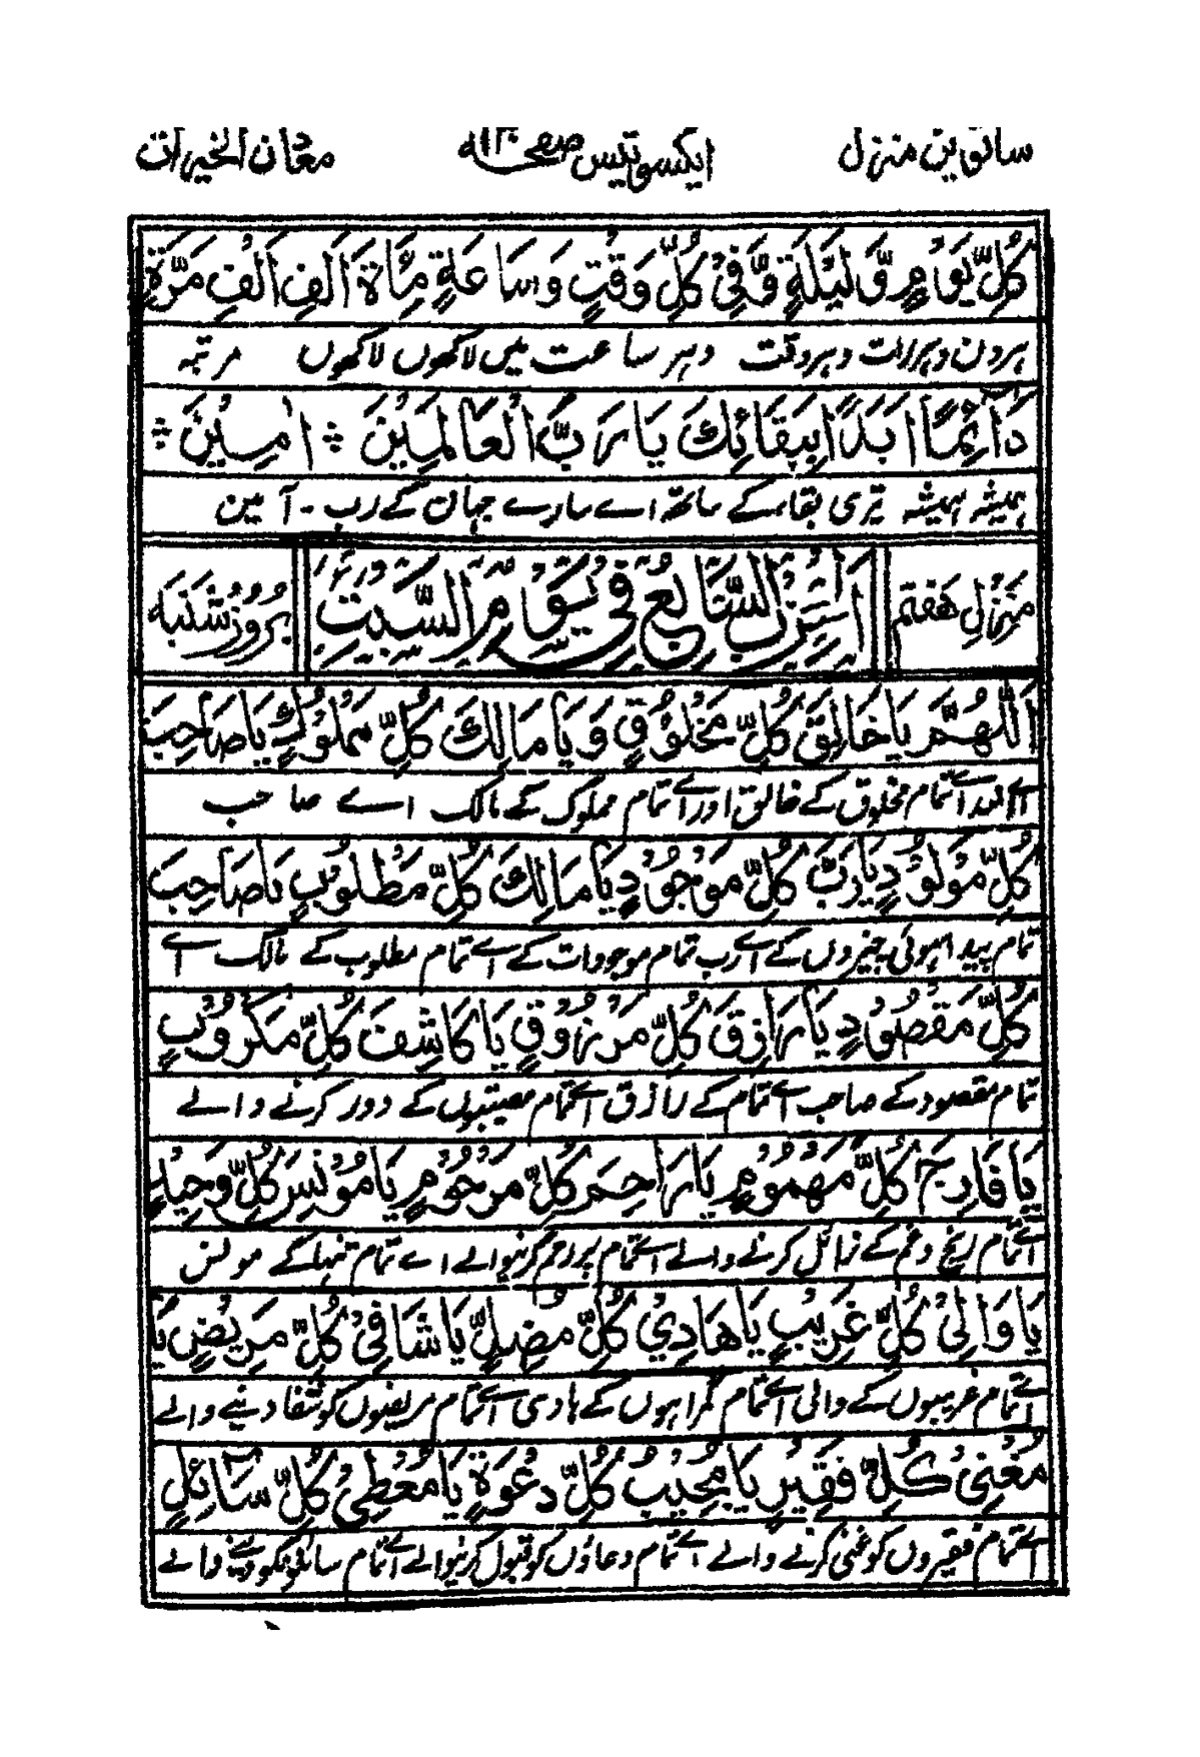 ساتویں منزل ایکسوتیس صفحہ ۱۳۰ معدن الخیرات
كُلِّ يَوْمٍ وَّلَيْلَةٍ وَّفِيْ كُلِّ وَقْتٍ وَسَاعَةٍ مِئَاةَ اَلْفِ اَلْفِ مَرَّةٍ
ہر دن و ہر رات و ہر وقت و ہر ساعت میں لاکھوں لاکھوں مرتبہ
دَآئِمًا اَبَدًا بِبَقَائِكَ يَا رَبَّ الْعَالَمِيْنَ ۞ اٰمِيْنَ ۞
ہمیشہ ہمیشہ تیری بقاء کے ساتھ اے سارے جہان کے رب ۔ آمین
منزل ہفتم
السَّابِعُ فِيْ يَوْمِ السَّبْتِ
بروز شنبه
اَللّٰهُمَّ يَا خَالِقَ كُلِّ مَخْلُوْقٍ وَيَا مَالِكَ كُلِّ مَمْلُوْكٍ يَا صَاحِبَ
اے اللہ اے تمام مخلوق کے خالق اور اے تمام مملوک کے مالک اے صاحب
كُلِّ مَوْلُوْدٍ يَا رَبَّ كُلِّ مَوْجُوْدٍ يَا مَالِكَ كُلِّ مَطْلُوْبٍ يَا صَاحِبَ
تمام پیدا ہوئی چیزوں کے اے رب تمام موجودات کے اے تمام مطلوب کے مالک اے
كُلِّ مَقْصُوْدٍ يَا رَازِقَ كُلِّ مَرْزُوْقٍ يَا كَاشِفَ كُلِّ مَكْرُوْبٍ
تمام مقصود کے صاحب اے تمام کے رازق اے تمام مصیبتوں کے دور کرنے والے
يَا فَارِجَ كُلِّ مَهْمُوْمٍ يَا رَاحِمَ كُلِّ مَرْحُوْمٍ يَا مُوْنِسَ كُلِّ وَحِيْدٍ
اے تمام رنج و غم کے زائل کرنے والے اے تمام پر رحم کرنیوالے اے تمام تنہا کے مونس
يَا وَالِيَ كُلِّ غَرِيْبٍ يَا هَادِيَ كُلِّ مُضِلٍّ يَا شَافِيَ كُلِّ مَرِيْضٍ يَا
اے تمام غریبوں کے والی اے تمام گمراہوں کے ہادی اے تمام مریضوں کو شفا دینے والے
مُغْنِيَ كُلِّ فَقِيْرٍ يَا مُجِيْبَ كُلِّ دَعْوَةٍ يَا مُعْطِيَ كُلِّ سَائِلٍ
اے تمام فقیروں کو غنی کرنے والے اے تمام دعاؤں کو قبول کرنیوالے اے تمام سائلونکو دینے والے